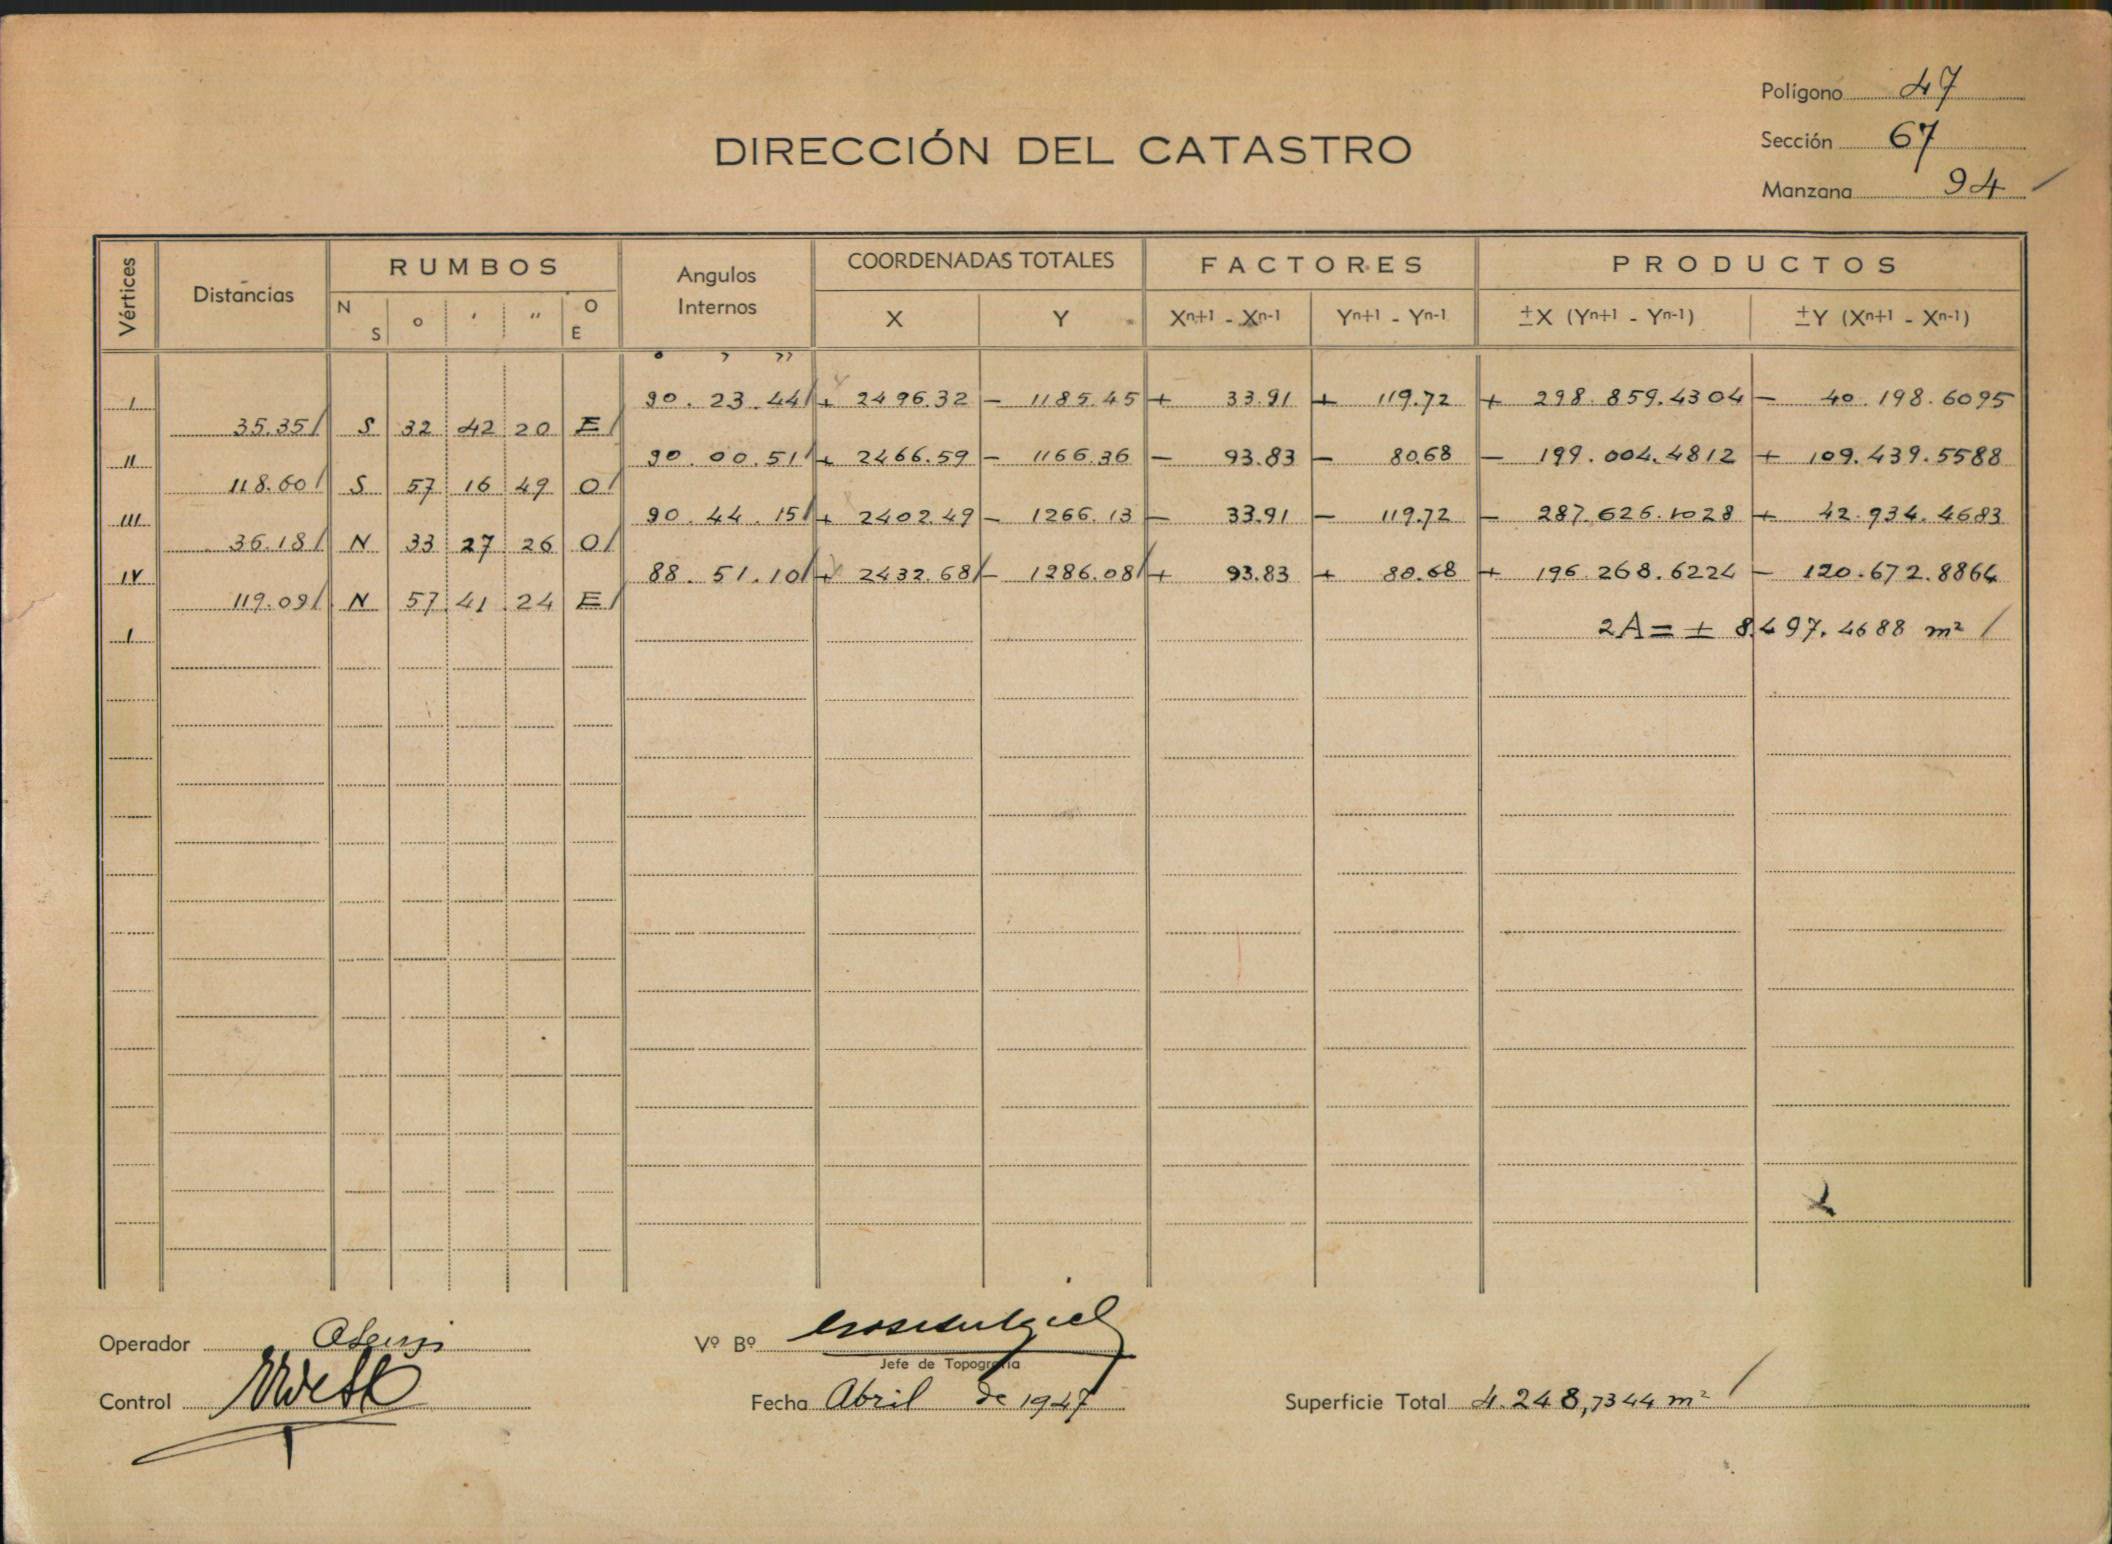 Polígono 47
DIRECCIÓN DEL CATASTRO
Sección 67
Manzana 94
Vértices Distancias RUMBOS Angulos Internos COORDENADAS TOTALES FACTORES PRODUCTOS
N S o ′ ″ O E X Y Xn+1 - Xn-1 Yn+1 - Yn-1 ±X (Yn+1 - Yn-1) ±Y (Xn+1 - Xn-1)
o , ,,
I 90. 23. 44 + 2496.32 - 1185.45 + 33.91 + 119.72 + 298.859.4304 - 40.198.6095
35.35 S 32 42 20 E
II 90. 00. 51 + 2466.59 - 1166.36 - 93.83 - 80.68 - 199.004.4812 + 109.439.5588
118.60 S 57 16 49 O
III 90. 44. 15 + 2402.49 - 1266.13 - 33.91 - 119.72 - 287.626.1028 + 42.934.4683
36.18 N 33 27 26 O
IV 88. 51. 10 + 2432.68 - 1286.08 + 93.83 + 80.68 + 196.268.6224 - 120.672.8864
119.09 N 57 41 24 E
I 2A = ± 8.497.4688 m²
Operador
Vº Bº
Jefe de Topografía
Control
Fecha Abril de 1947
Superficie Total 4.248,7344 m²